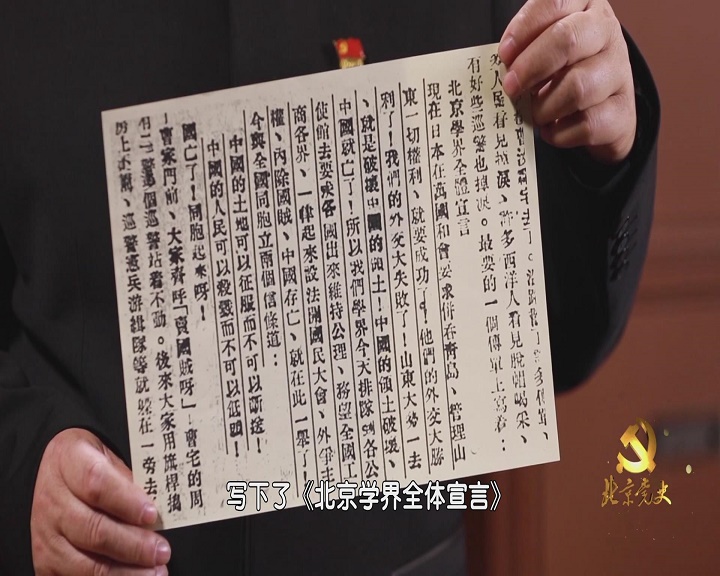 了許多傳單、
人民看見掉淚、許多西洋人看見脫帽喝采、
有好些巡警也掉淚。最要的一個傳單上寫着:
北京學界全體宣言
現在日本在萬國和會要求併吞青島、管理山
東一切權利、就要成功了!他們的外交大勝
利了!我們的外交大失敗了!山東大勢一去
、就是破壞中國的領土!中國的領土破壞、
中國就亡了!所以我們學界今天排隊到各公
使館去要求各國出來維持公理、務望全國工
商各界、一律起來設法開國民大會、外爭主
權、內除國賊、中國存亡、就在此一舉了!
今與全國同胞立兩個信條道:
中國的土地可以征服而不可以斷送!
中國的人民可以殺戮而不可以低頭!
國亡了!同胞起來呀!
曹家門前、大家齊呼「賣國賊呀」!曹宅的周
個巡警站着不動。後來大家用旗桿搗
巡警憲兵游緝隊等就躲在一旁去
写下了《北京学界全体宣言》
北京党史